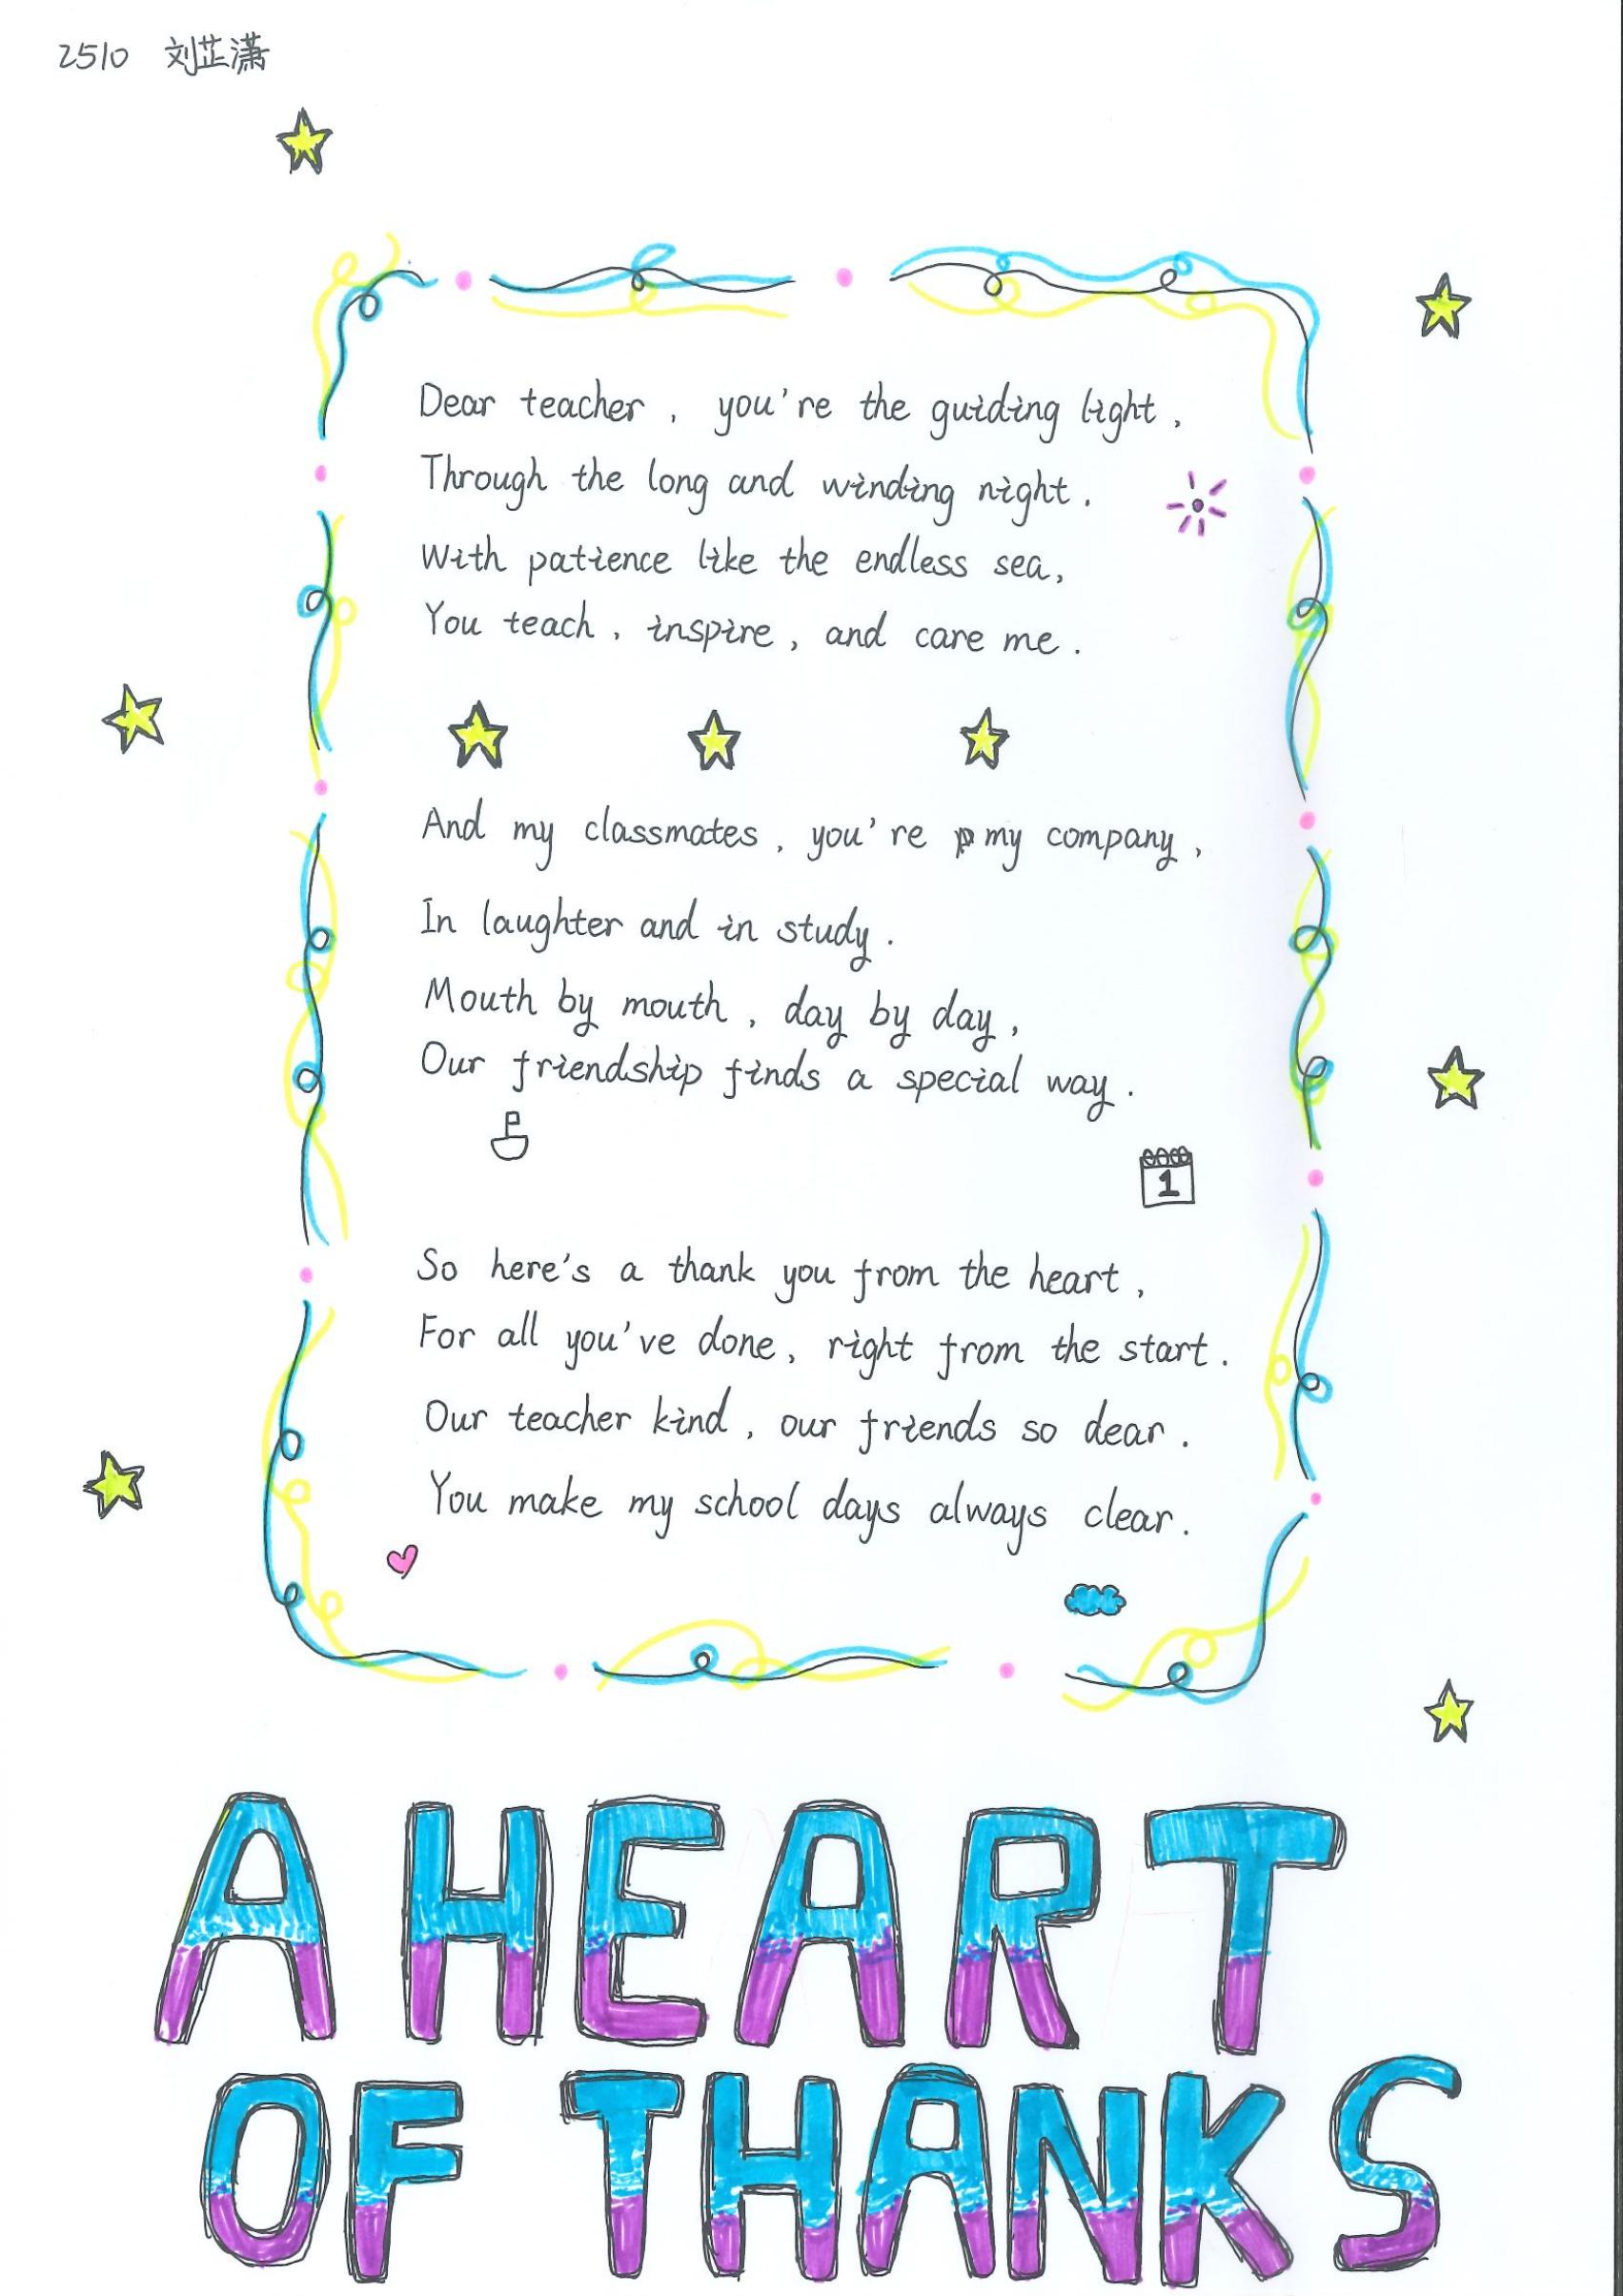 2510 刘芷潇
Dear teacher, you're the guiding light,
Through the long and winding night.
With patience like the endless sea,
You teach, inspire, and care me.
And my classmates, you're my company,
In laughter and in study.
Mouth by mouth, day by day,
Our friendship finds a special way.
1
So here's a thank you from the heart,
For all you've done, right from the start.
Our teacher kind, our friends so dear.
You make my school days always clear.
A HEART
OF THANKS